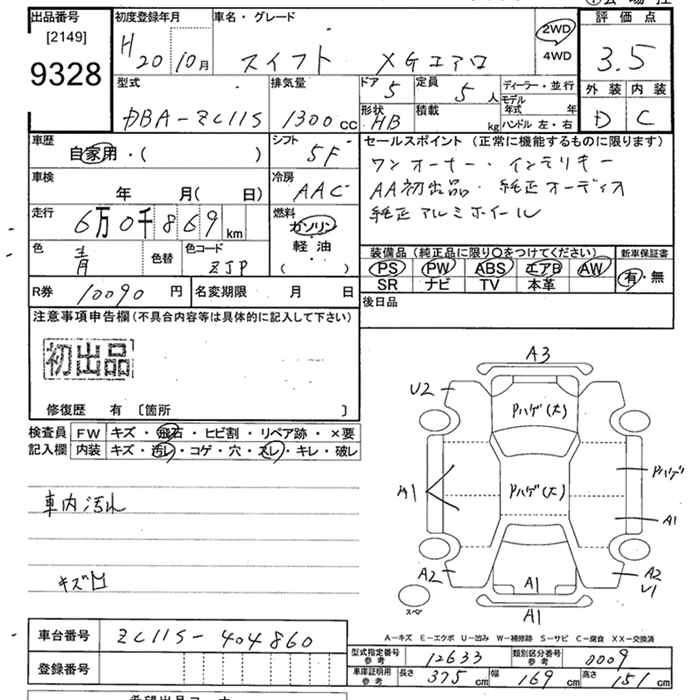 出品番号 初度登録年月 車名・グレード 評価点
[2149] H20 10月 スイフト XGエアロ 2WD 4WD 3.5
9328 外装 内装
型式 排気量 ドア 5 定員 5人 ディーラー・並行 D C
DBA-ZC11S 1300cc 形状 HB 積載 kg モデル年式 年 ハンドル左・右
車歴 自家用・( ) シフト 5F セールスポイント (正常に機能するものに限ります)
ワンオーナー・インテリキー
車検 年 月( 日) 冷房 AAC AA初出品・純正オーディオ
走行 6万0千869km 燃料 ガソリン 軽油 ( ) 純正アルミホイール
色 青 色替 色コード ZJP 装備品 (純正品に限り〇をつけてください) 新車保証書
PS PW ABS エアB AW 有・無
SR ナビ TV 本革
R券 10090円 名変期限 月 日 後日品
注意事項申告欄(不具合内容等は具体的に記入して下さい)
初出品
修復歴 有 [箇所 ]
検査員 FW キズ・飛石・ヒビ割・リペア跡・×要
記入欄 内装 キズ・汚レ・コゲ・穴・スレ・キレ・破レ
車内汚れ
キズ凹
A3
U2
Pハゲ(大)
Pハゲ
A1 Pハゲ(大)
A1
A2 A1 A2
U1
スペア A1
A-キズ E-エクボ U-凹み W-補修跡 S-サビ C-腐食 XX-交換済
車台番号 ZC11S-404860
登録番号
型式指定番号 参考 12633 類別区分番号 参考 0009
車庫証明用 参考 長さ 375cm 幅 169cm 高さ 151cm